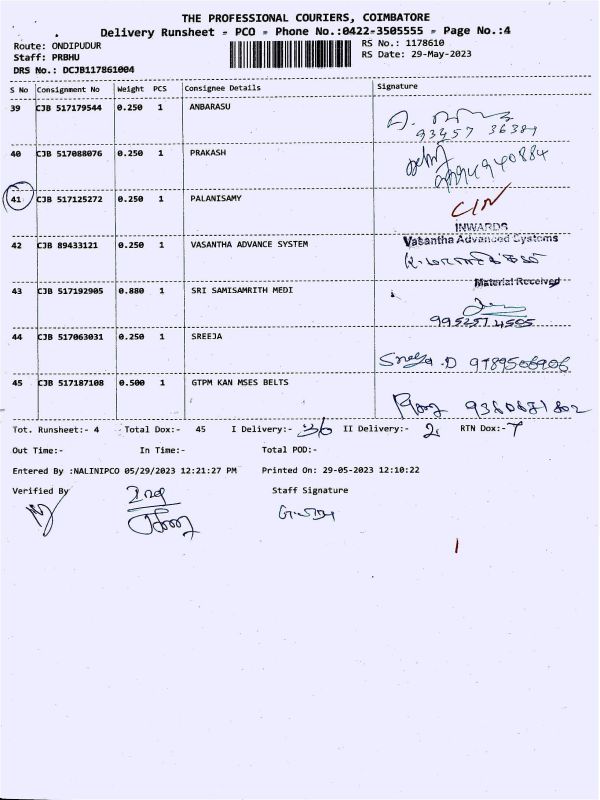 THE PROFESSIONAL COURIERS, COIMBATORE
Delivery Runsheet - PCO - Phone No.:0422-3505555 - Page No.:4
Route: ONDIPUDUR RS No.: 1178610
Staff: PRBHU RS Date: 29-May-2023
DRS No.: DCJB117861004
S No Consignment No Weight PCS Consignee Details Signature
39 CJB 517179544 0.250 1 ANBARASU
93457 36384
40 CJB 517088076 0.250 1 PRAKASH
41 CJB 517125272 0.250 1 PALANISAMY
INWARDS
42 CJB 89433121 0.250 1 VASANTHA ADVANCE SYSTEM Vasantha Advanced Systems
Material Received
43 CJB 517192905 0.880 1 SRI SAMISAMRITH MEDI
9952574505
44 CJB 517063031 0.250 1 SREEJA
Sreeja .D 9789506906
45 CJB 517187108 0.500 1 GTPM KAN MSES BELTS
9380871802
Tot. Runsheet:- 4 Total Dox:- 45 I Delivery:- 36 II Delivery:- 2 RTN Dox:- 7
Out Time:- In Time:- Total POD:-
Entered By :NALINIPCO 05/29/2023 12:21:27 PM Printed On: 29-05-2023 12:10:22
Verified By Staff Signature